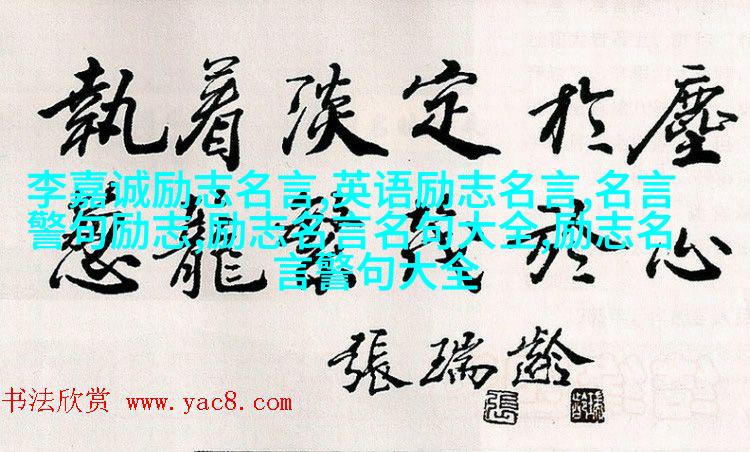 執着淡定於塵
李嘉诚励志名言,英语励志名言,名言
警句励志,励志名言名句大全,励志名
言警句大全
龍 於心
張瑞齡
張
书法欣赏 www.yac8.com